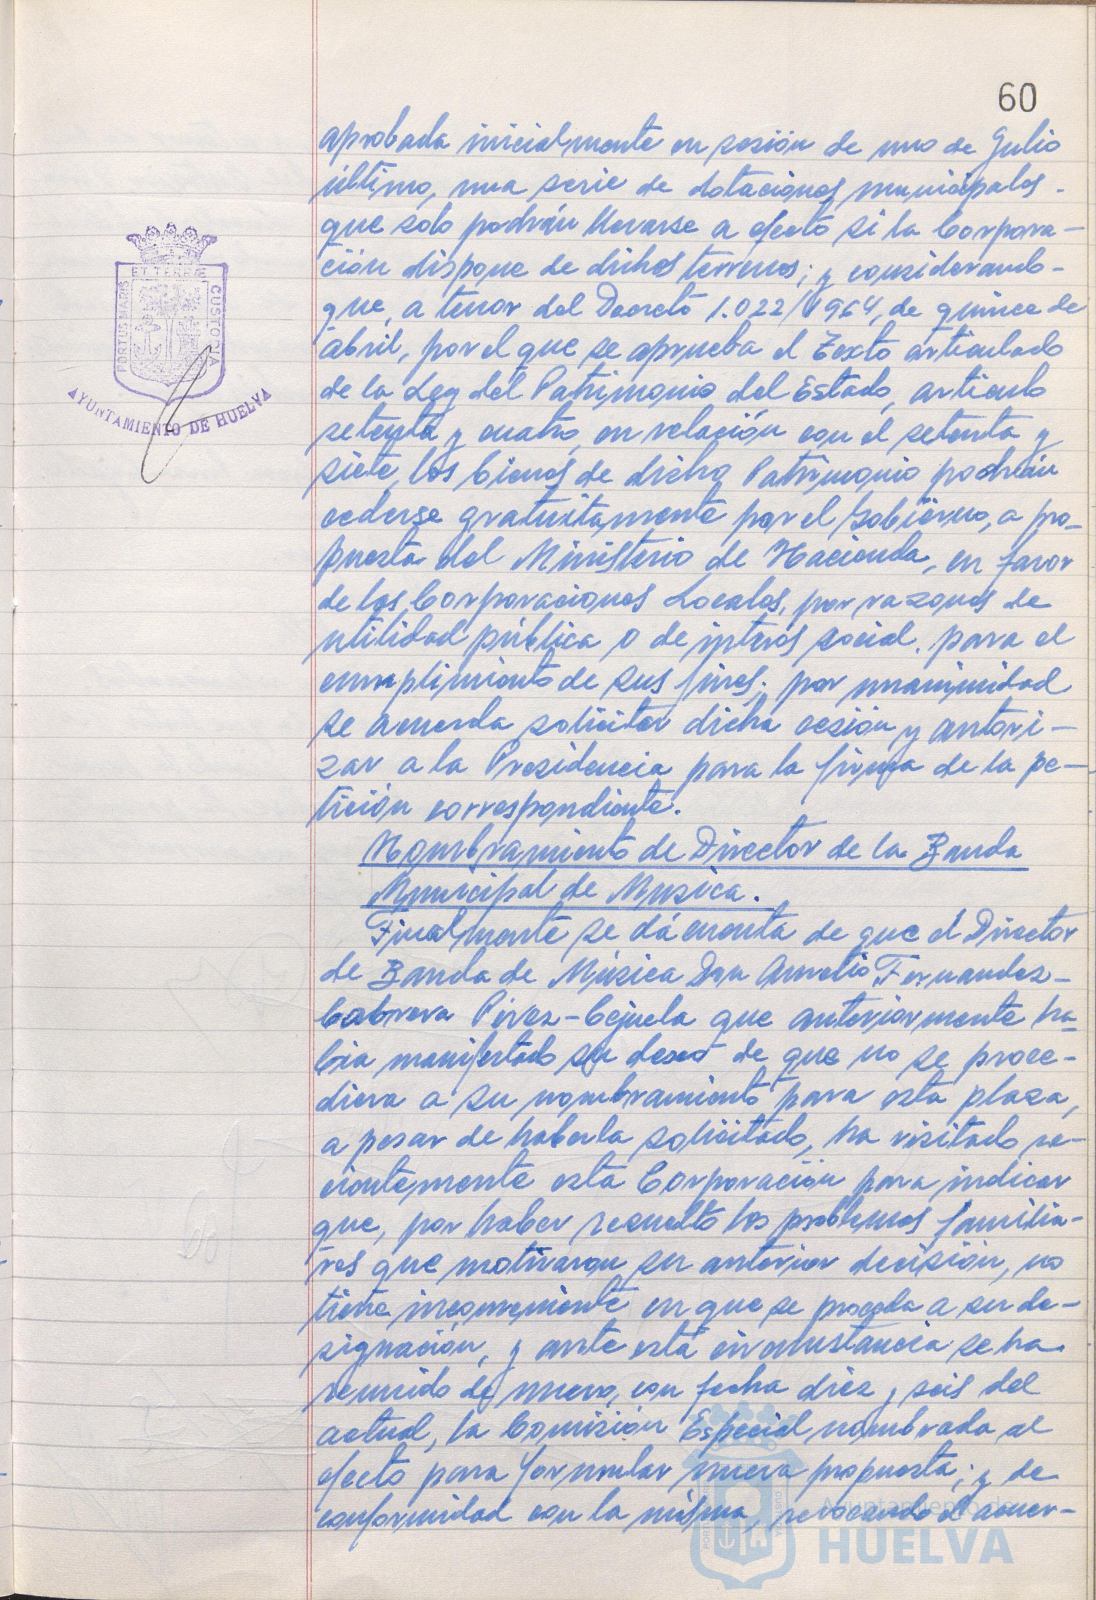 60
aprobada inicialmente en sesión de uno de Julio
último, una serie de dotaciones municipales
que solo podrán llevarse a efecto si la Corpora-
ción dispone de dichos terrenos; y considerando
que, a tenor del Decreto 1.022/1964, de quince de
abril, por el que se aprueba el Texto articulado
de la Ley del Patrimonio del Estado, articulo
setenta y cuatro, en relación con el setenta y
siete, los bienes de dicho Patrimonio podrán
cederse gratuitamente por el Gobierno, a pro-
puesta del Ministerio de Hacienda, en favor
de las Corporaciones Locales, por razones de
utilidad pública o de interés social, para el
cumplimiento de sus fines; por unanimidad
se acuerda solicitar dicha cesión y autori-
zar a la Presidencia para la firma de la pe-
tición correspondiente.
Nombramiento de Director de la Banda
Municipal de Música.
Finalmente se dá cuenta de que el Director
de Banda de Música Don Aurelio Fernandez-
Cabrera Pérez-Cejuela que anteriormente ha-
bia manifestado su deseo de que no se proce-
diera a su nombramiento para esta plaza,
a pesar de haberla solicitado, ha visitado re-
cientemente esta Corporación para indicar
que, por haber resuelto los problemas familia-
res que motivaron su anterior decisión, no
tiene inconveniente en que se proceda a su de-
signación, y ante esta circunstancia se ha
reunido de nuevo, con fecha diez y seis del
actual, la Comisión Especial nombrada al
efecto para formular nueva propuesta; y de
conformidad con la misma, revocando el acuer-
PORTUS MARIS ET TERRÆ CUSTODIA
AYUNTAMIENTO DE HUELVA
Ayuntamiento de
HUELVA